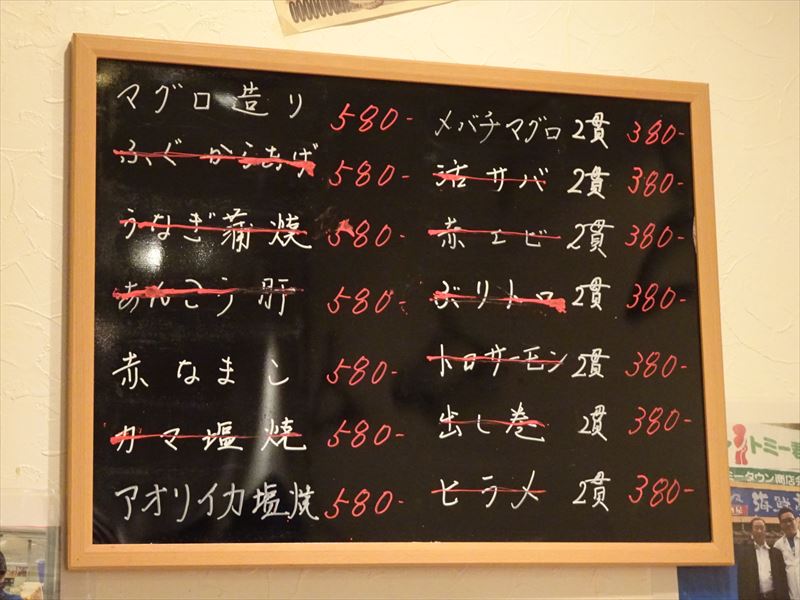 マグロ造り 580-
ふぐからあげ 580-
うなぎ蒲焼 580-
あんこう肝 580-
赤なまこ 580-
カマ塩焼 580-
アオリイカ塩焼 580-
メバチマグロ 2貫 380-
活サバ 2貫 380-
赤エビ 2貫 380-
ぶりトロ 2貫 380-
トロサーモン 2貫 380-
出し巻 2貫 380-
ヒラメ 2貫 380-
トミー
ミータウン商店
海鮮